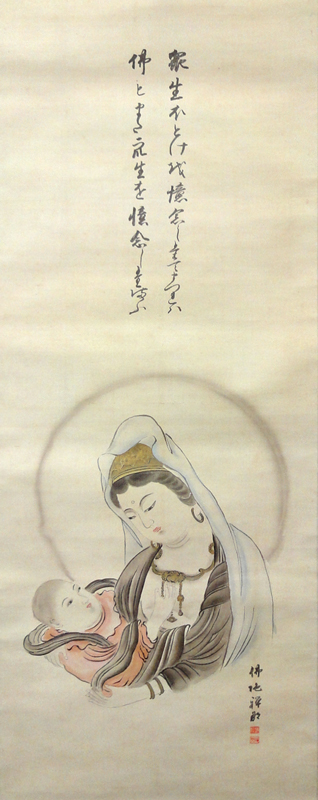 衆生ほとけを憶念したてまつれハ
佛もまた衆生を憶念したまふ
佛地禅